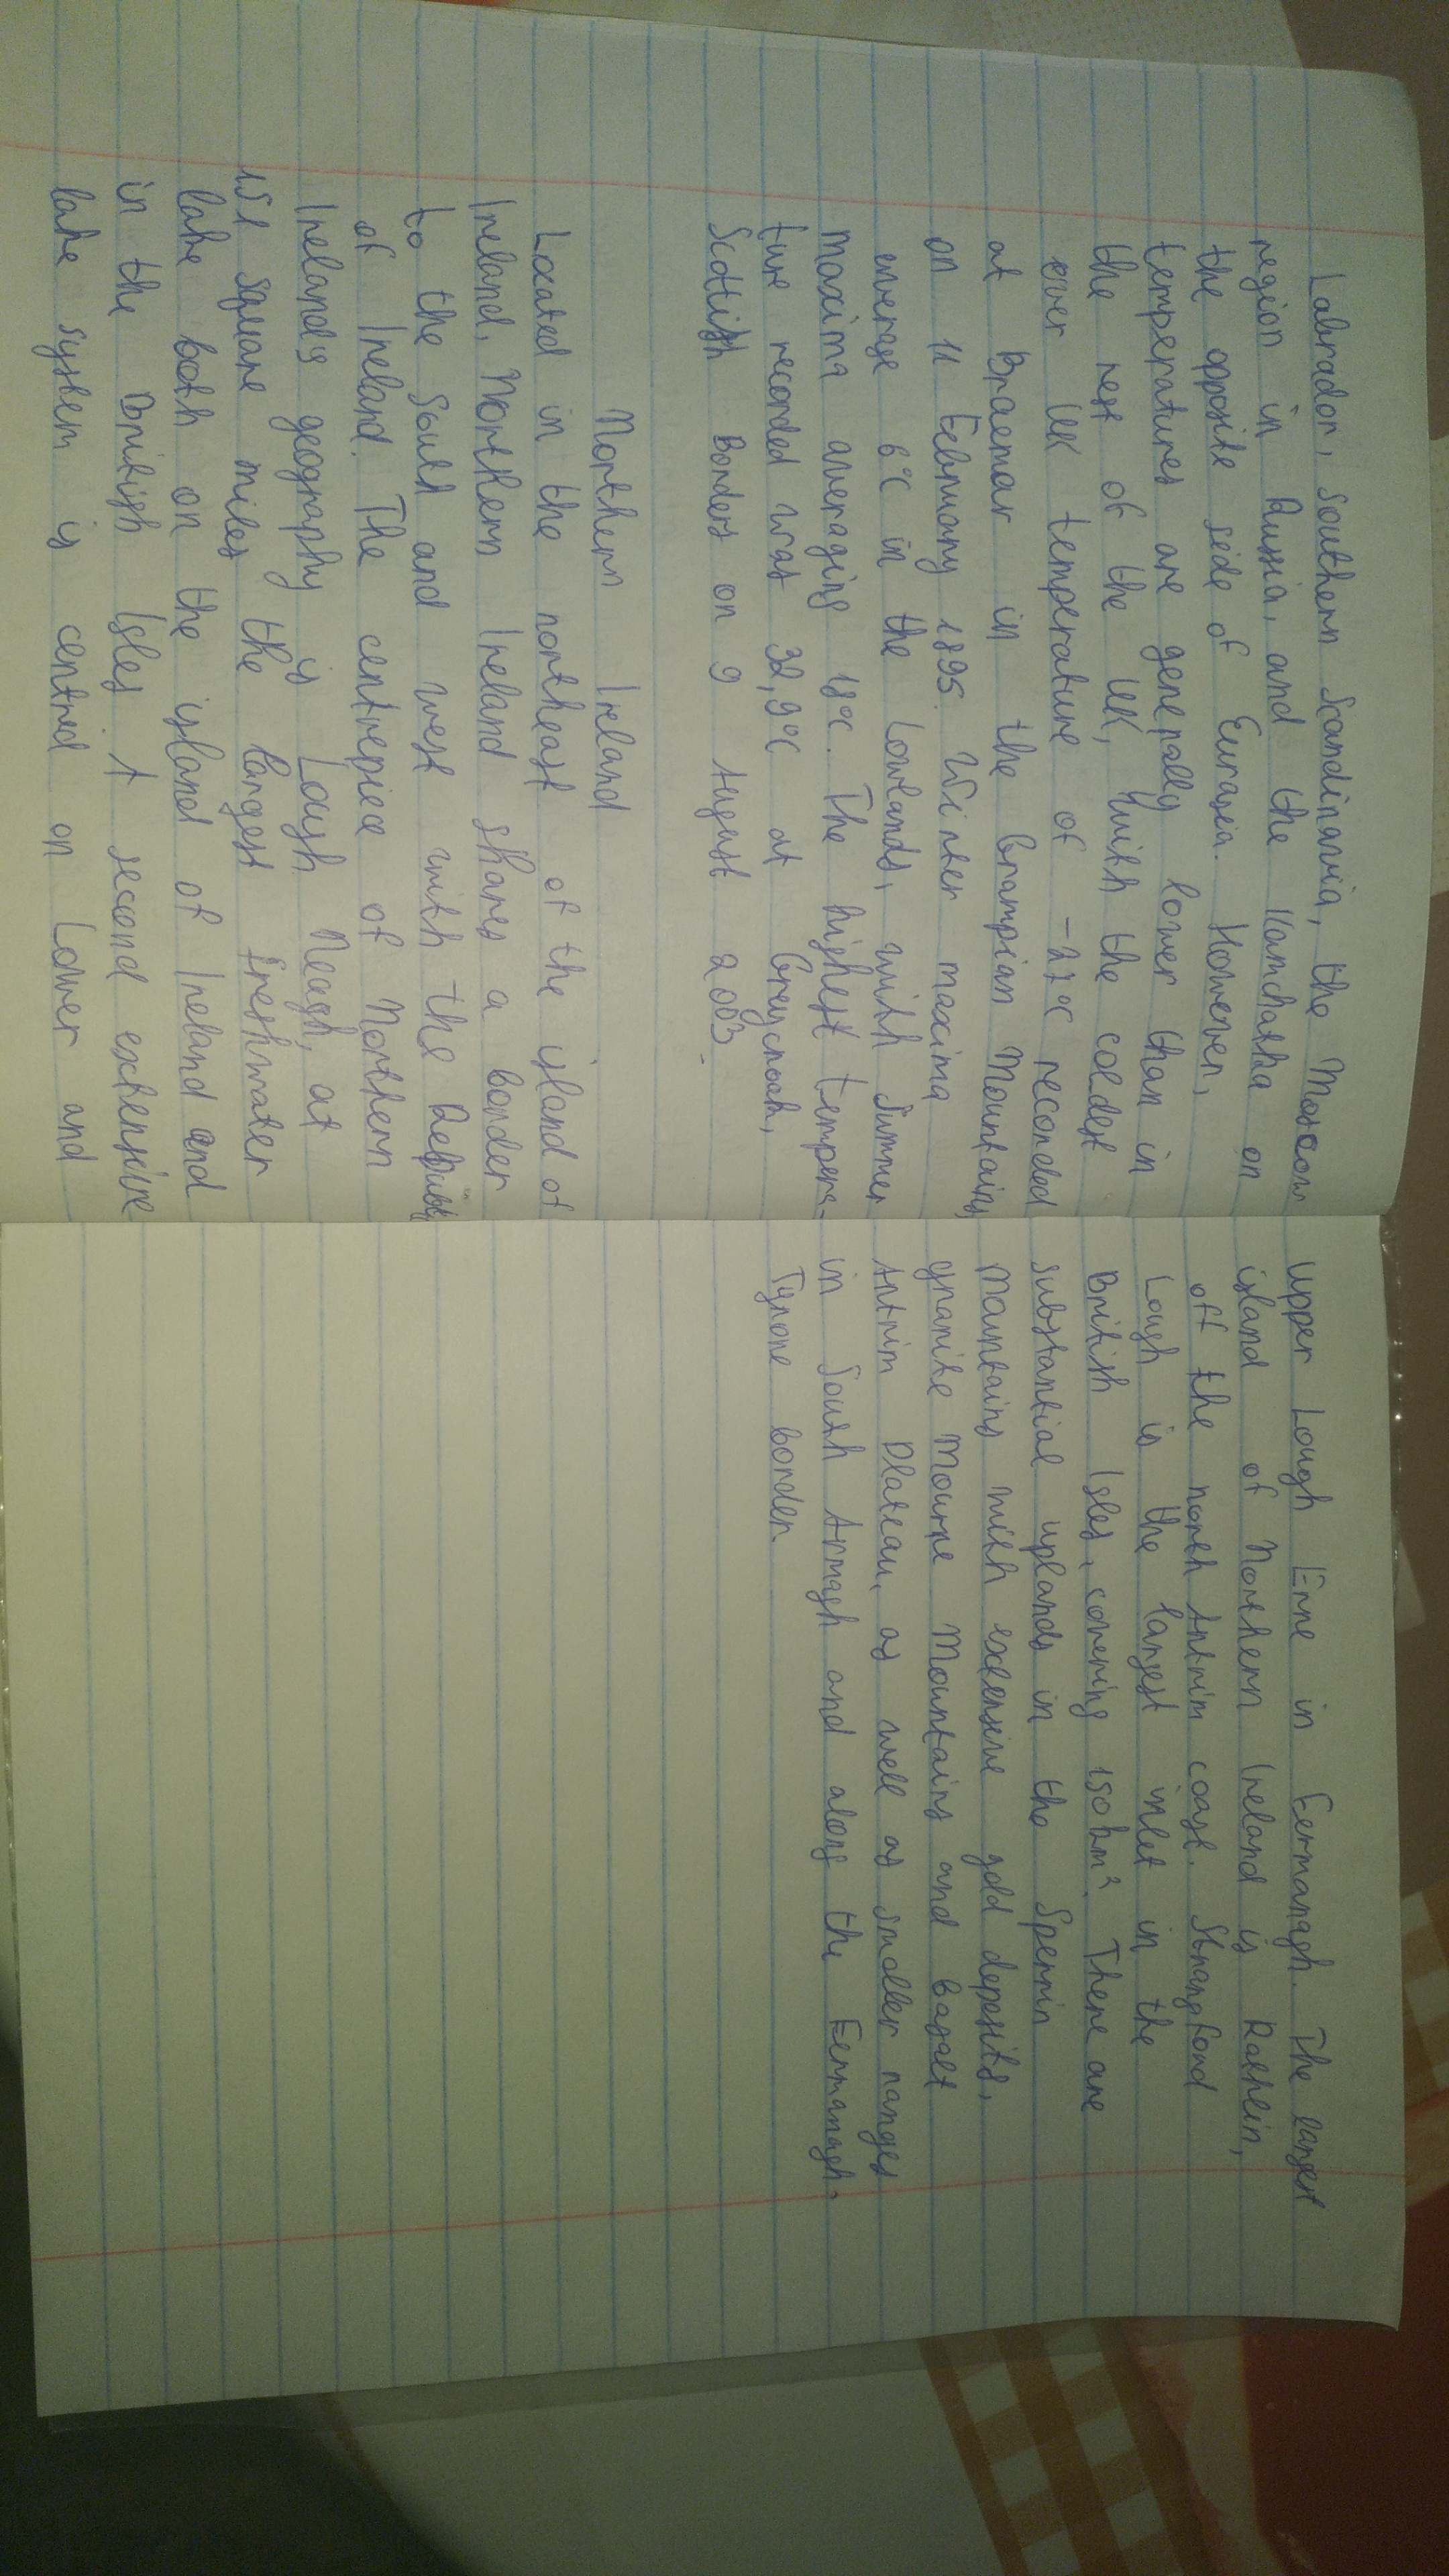 Labrador, southern Scandinavia, the Moscow
region in Russia, and the Kamchatka on
the opposite side of Eurasia. However,
temperatures are generally lower than in
the rest of the UK, with the coldest
ever UK temperature of -27°C recorded
at Braemar in the Grampian Mountains,
on 11 February 1895. Winter maxima
average 6°C in the Lowlands, with summer
maxima averaging 18°C. The highest tempera-
ture recorded was 32,9°C at Greycrook,
Scottish Borders on 9 August 2003.
Northern Ireland
Located in the northeast of the island of
Ireland, Northern Ireland shares a border
to the south and west with the Republic
of Ireland. The centrepiece of Northern
Ireland's geography is Lough Neagh, at
151 square miles the largest freshwater
lake both on the island of Ireland and
in the British Isles. A second extensive
lake system is centred on Lower and
Upper Lough Erne in Fermanagh. The largest
island of Northern Ireland is Rathlin,
off the north Antrim coast. Strangford
Lough is the largest inlet in the
British Isles, covering 150 km². There are
substantial uplands in the Sperrin
Mountains with extensive gold deposits,
granite Mourne Mountains and basalt
Antrim Plateau, as well as smaller ranges
in South Armagh and along the Fermanagh-
Tyrone border